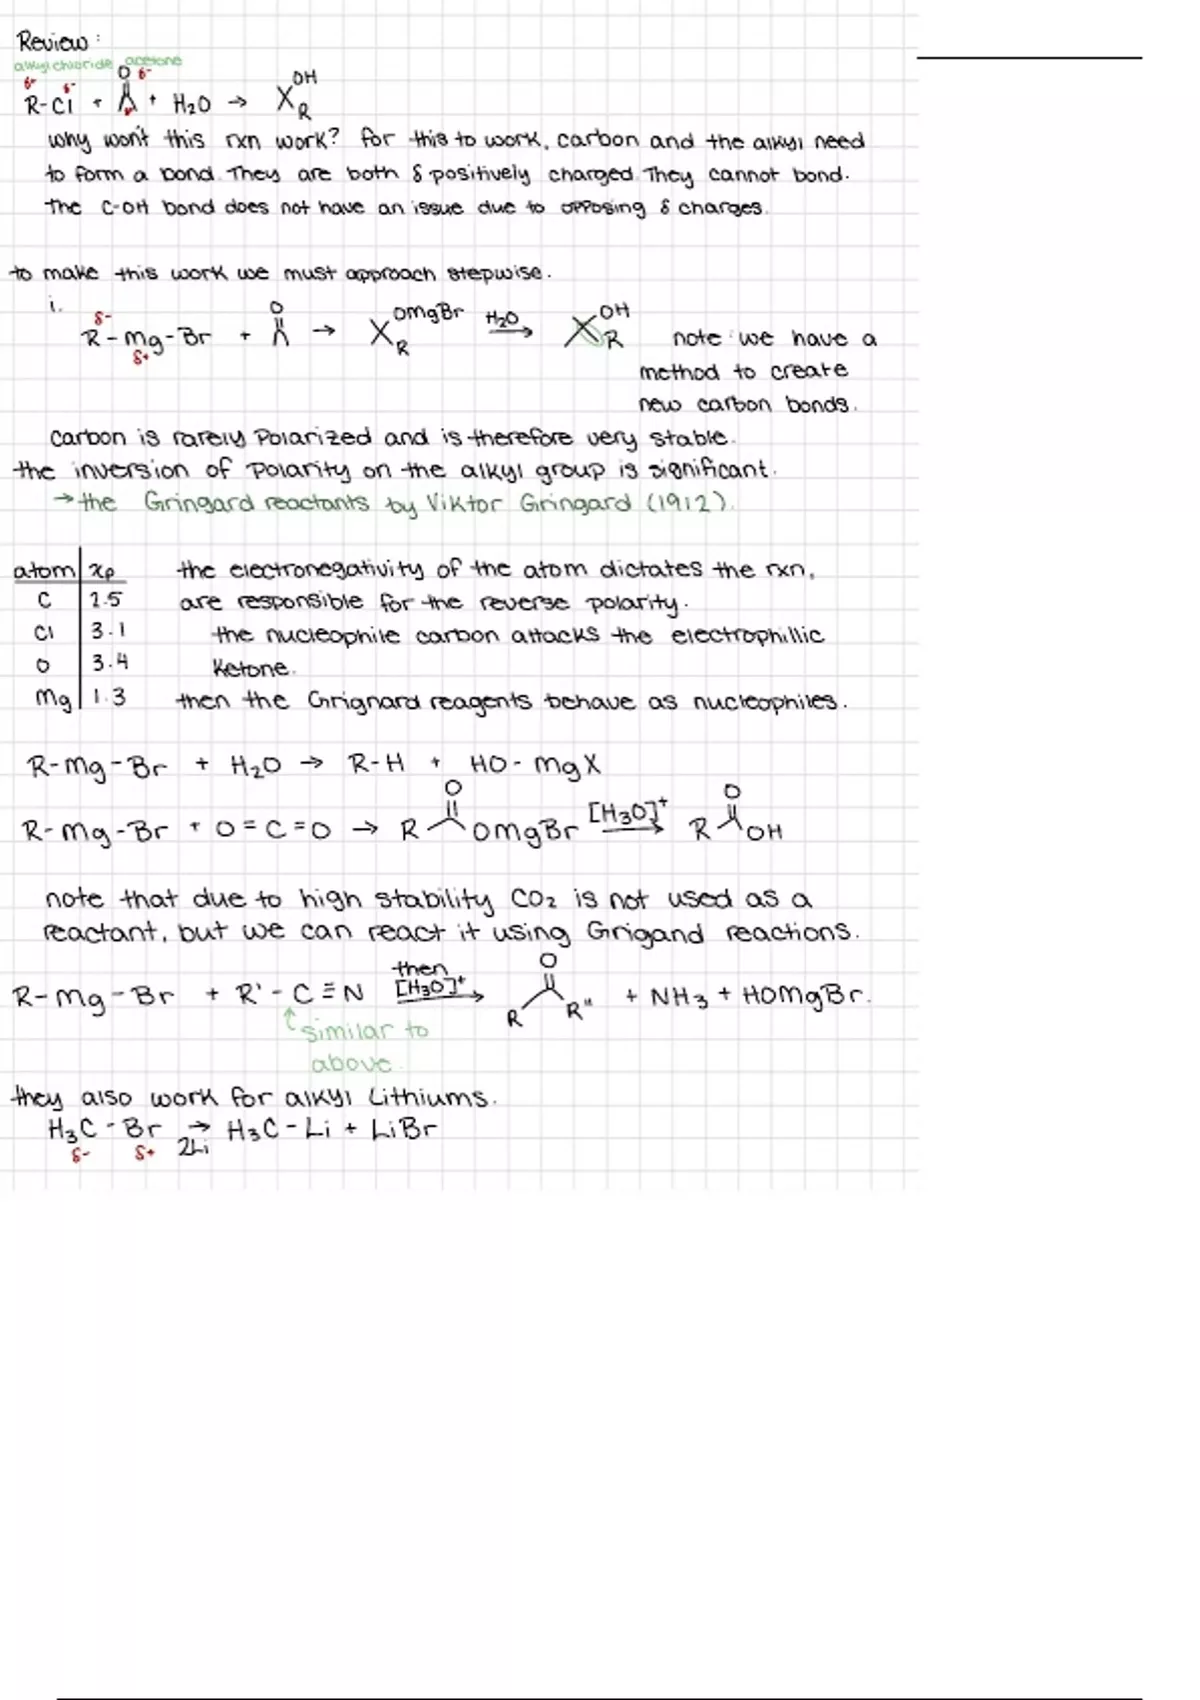 Review:
alkyl chloride acetone
O δ-
δ+ δ- OH
R-Cl + + H₂O → R
why won't this rxn work? for this to work, carbon and the alkyl need
to form a bond. They are both δ positively charged. They cannot bond.
the C-OH bond does not have an issue due to opposing δ charges.
to make this work we must approach stepwise.
i.
δ- O OMgBr H₂O OH
R-Mg-Br + → R → R note: we have a
δ+
method to create
new carbon bonds.
carbon is rarely Polarized and is therefore very stable.
the inversion of polarity on the alkyl group is significant.
→ the Gringard reactants by Viktor Gringard (1912).
atom xp the electronegativity of the atom dictates the rxn,
C 2.5 are responsible for the reverse polarity.
Cl 3.1 the nucleophile carbon attacks the electrophillic
O 3.4 ketone.
Mg 1.3 then the Grignard reagents behave as nucleophiles.
R-Mg-Br + H₂O → R-H + HO-MgX
O [H₃O]⁺ O
R-Mg-Br + O=C=O → R OMgBr → R OH
note that due to high stability CO₂ is not used as a
reactant, but we can react it using Grigand reactions.
then O
R-Mg-Br + R'-C≡N [H₃O]⁺ → R R" + NH₃ + HOMgBr.
similar to
above.
they also work for alkyl Lithiums.
H₃C-Br → H₃C-Li + LiBr
δ- δ+ 2Li